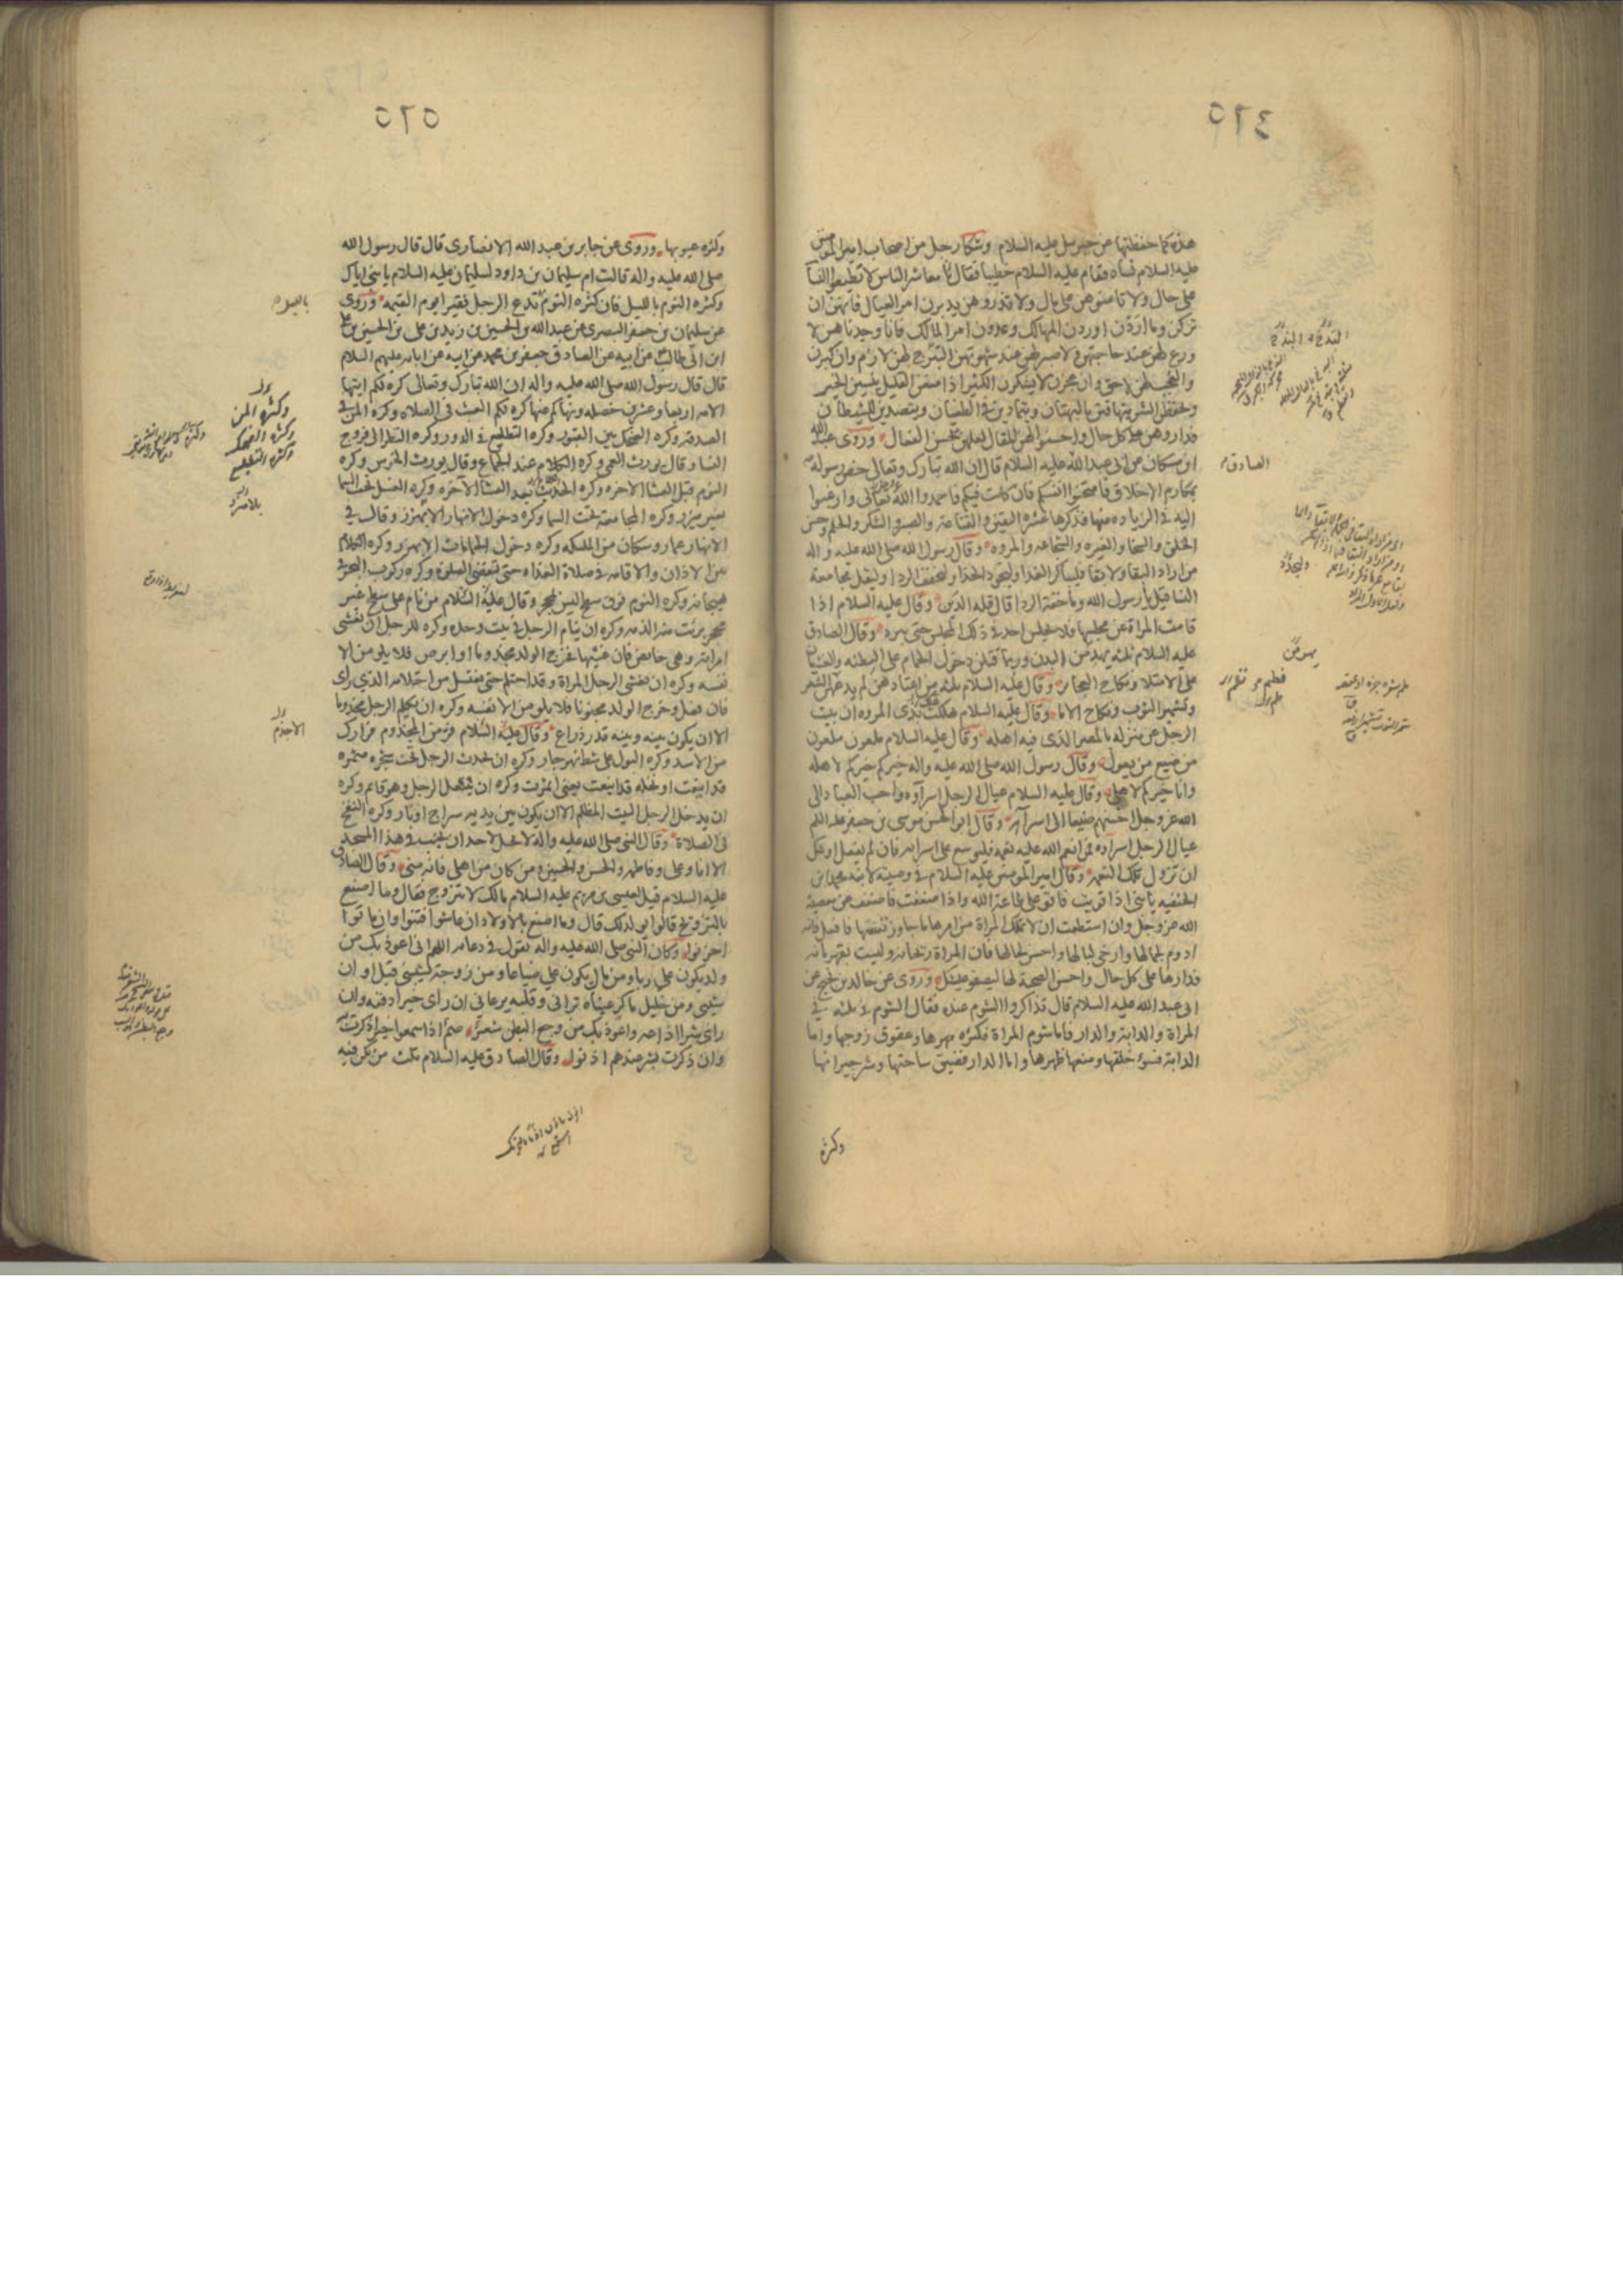 ٥٦٤
هذه كما حفظتها عن جبرئيل عليه السلام وشكا رجل من اصحاب امير المؤمنين
عليه السلام نساه فقام عليه السلام خطيبا فقال يا معاشر الناس لا تطيعوا النسا
على حال ولا تامنوهن على مال ولا تذروهن يدبرن امر العيال فانهن ان
تركن وما اردن اوردن المهالك وعدون امر المالك فانا وجدناهن لا
ورع لهن عند حاجتهن ولا صبر لهن عند شهوتهن التبرج لهن لازم وان كبرن
والعجب لهن لاحق وان عجزن لا يشكرن الكثير اذا منعن القليل ينسين الخير
ويحفظن الشر يتهافتن بالبهتان ويتمادين في الطغيان ويتصدين للشيطان
فداروهن على كل حال واحسنوا لهن المقال لعلهن يحسن الفعال وروى عبد الله
ابن مسكان عن ابى عبد الله عليه السلام قال ان الله تبارك وتعالى خص رسوله
بمكارم الاخلاق فامتحنوا انفسكم فان كانت فيكم فاحمدوا الله تعالى وارغبوا
اليه في الزياده منها فذكرها عشره اليقين والقناعة والصبر والشكر والحلم وحسن
الخلق والسخا والغيره والشجاعه والمروه وقال رسول الله صلى الله عليه واله
من اراد البقا ولا بقا فليباكر الغدا وليجود الحذا وليخفف الردا وليقل مجامعة
النسا قيل يا رسول الله وما خفة الردا قال قلة الدين وقال عليه السلام اذا
قامت المراة عن مجلسها فلا يجلس احد في ذلك المجلس حتى يبرد وقال الصادق
عليه السلام ثلثه يهدمن البدن وربما قتلن دخول الحمام على البطنه والغشيان
على الامتلا ونكاح العجائز وقال عليه السلام ثلثه من اعتادهن لم يدعهن الشعر
وتشمير الثوب ونكاح الاما وقال عليه السلام هلك بذى المروه ان يبيت
الرجل عن منزله بالمصر الذى فيه اهله وقال عليه السلام ملعون ملعون
من ضيع من يعول وقال رسول الله صلى الله عليه واله خيركم خيركم لاهله
وانا خيركم لاهلى وقال عليه السلام عيال الرجل اسراؤه واحب العباد الى
الله عز وجل احسنهم صنيعا الى اسرائه وقال ابو الحسن موسى بن جعفر عليه السلام
عيال الرجل اسراؤه فمن انعم الله عليه نعمه فليوسع على اسرائه فان لم يفعل اوشك
ان تزول تلك النعمه وقال امير المومنين عليه السلام في وصيته لابنه محمد ابن
الحنفيه يا بنى اذا قويت فاقو على طاعة الله واذا ضعفت فاضعف عن معصية
الله عز وجل وان استطعت ان لا تملك المراة من امرها ما جاوز نفسها فافعل فانه
ادوم لجمالها وارخى لبالها واحسن لحالها فان المراة ريحانه وليست بقهرمانه
فدارها على كل حال واحسن الصحبة لها ليصفو عيشك وروى عن خالد بن نجيح عن
ابى عبد الله عليه السلام قال تذاكروا الشوم عنده فقال الشوم في ثلثه في
المراة والدابة والدار فاما شوم المراة فكثره مهرها وعقوق زوجها واما
الدابة فسوء خلقها ومنعها ظهرها واما الدار فضيق ساحتها وشر جيرانها
الصادق
وكثره
٥٦٥
وكثره عيوبها وروى عن جابر بن عبد الله الانصارى قال قال رسول الله
صلى الله عليه واله قالت ام سليمان بن داود لسليمان عليه السلام يا بنى اياك
وكثره النوم بالليل فان كثره النوم تدع الرجل فقيرا يوم القيمه وروى
عن سليمان بن جعفر البصرى عن عبد الله بن الحسين بن زيد بن على بن الحسين بن على
ابن ابى طالب عن ابيه عن الصادق جعفر بن محمد عن ابيه عن ابائه عليهم السلام
قال قال رسول الله صلى الله عليه واله ان الله تبارك وتعالى كره لكم ايتها
الامه اربعا وعشرين خصله ونهاكم عنها كره لكم العبث فى الصلاه وكره المن في
الصدقه وكره الضحك بين القبور وكره التطلع في الدور وكره النظر الى فروج
النسا وقال يورث العمى وكره الكلام عند الجماع وقال يورث الخرس وكره
النوم قبل العشا الاخره وكره الحديث بعد العشا الاخره وكره الغسل تحت السما
بغير ميزر وكره المجامعة تحت السما وكره دخول الانهار الا بميزر وقال في
الانهار عمار وسكان من الملئكه وكره دخول الحمامات الا بميزر وكره الكلام
بين الاذان والاقامه في صلاة الغداه حتى تنقضى الصلوة وكره ركوب البحر في
هيجانه وكره النوم فوق سطح ليس بمحجر وقال عليه السلام من نام على سطح غير
محجر برئت منه الذمه وكره ان ينام الرجل في بيت وحده وكره للرجل ان يغشى
امراته وهى حايض فان غشيها فخرج الولد مجذوما او ابرص فلا يلومن الا
نفسه وكره ان يغشى الرجل المراة وقد احتلم حتى يغتسل من احتلامه الذي راى
فان فعل وخرج الولد مجنونا فلا يلومن الا نفسه وكره ان يكلم الرجل مجذوما
الا ان يكون بينه وبينه قدر ذراع وقال عليه السلام فر من المجذوم فرارك
من الاسد وكره البول على شط نهر جار وكره ان يحدث الرجل تحت شجره مثمره
قد اينعت او نخله قد اينعت يعنى اثمرت وكره ان ينتعل الرجل وهو قايم وكره
ان يدخل الرجل البيت المظلم الا ان يكون بين يديه سراج او نار وكره النفخ
فى الصلاة وقال النبى صلى الله عليه واله لا يحل لاحد ان يجنب في هذا المسجد
الا انا وعلى وفاطمه والحسن والحسين ومن كان من اهلى فانه منى وقال الصادق
عليه السلام قيل لعيسى بن مريم عليه السلام مالك لا تتزوج فقال وما اصنع
بالتزويج قالوا يولد لك قال وما اصنع بالاولاد ان عاشوا فتنوا وان ماتوا
احزنوا وكان النبى صلى الله عليه واله يقول في دعائه اللهم انى اعوذ بك من
ولد يكون على ربا ومن مال يكون على ضياعا ومن زوجة تشيبنى قبل اوان
شيبى ومن خليل ماكر عيناه ترانى وقلبه يرعانى ان راى خيرا دفنه وان
راى شرا اذاعه واعوذ بك من وجع البطن شعر صم اذا سمعوا خيرا ذكرت به
وان ذكرت بشر عندهم اذنوا وقال الصادق عليه السلام ثلث من تكن فيه
وكثره المن
وكثره الضحك
وكثره التطلع
الاجذم